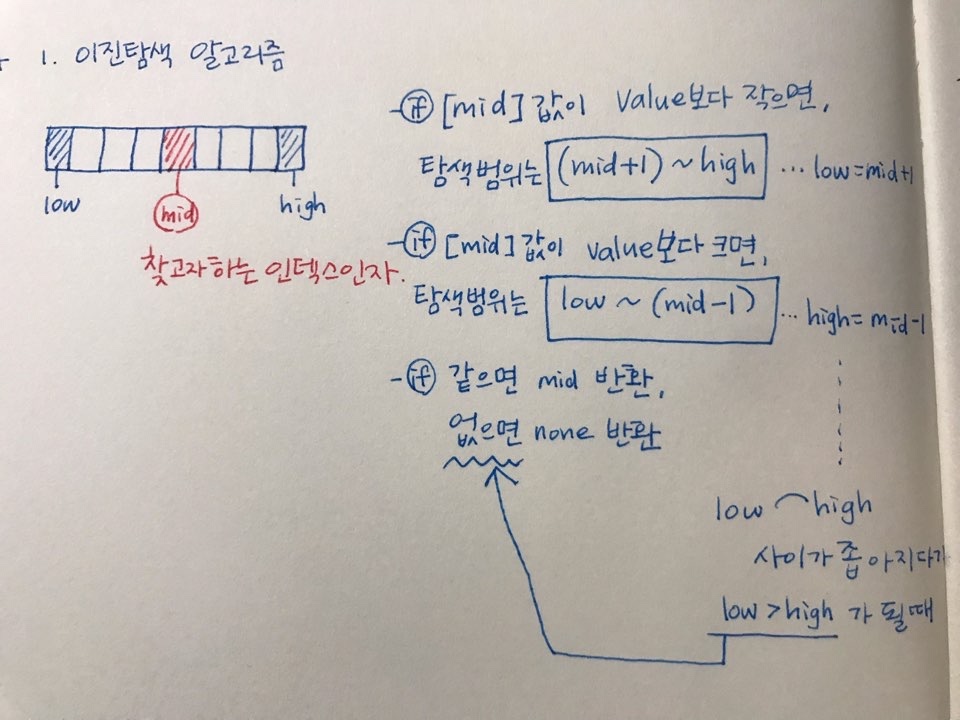 1. 이진탐색 알고리즘
low
mid
high
찾고자하는 인덱스인자.
- if [mid] 값이 value보다 작으면,
탐색범위는 (mid+1) ~ high ... low=mid+1
- if [mid] 값이 value보다 크면,
탐색범위는 low ~ (mid-1) ... high=mid-1
- if 같으면 mid 반환,
없으면 none 반환
low high
사이가 좁아지다가
low > high 가 될때